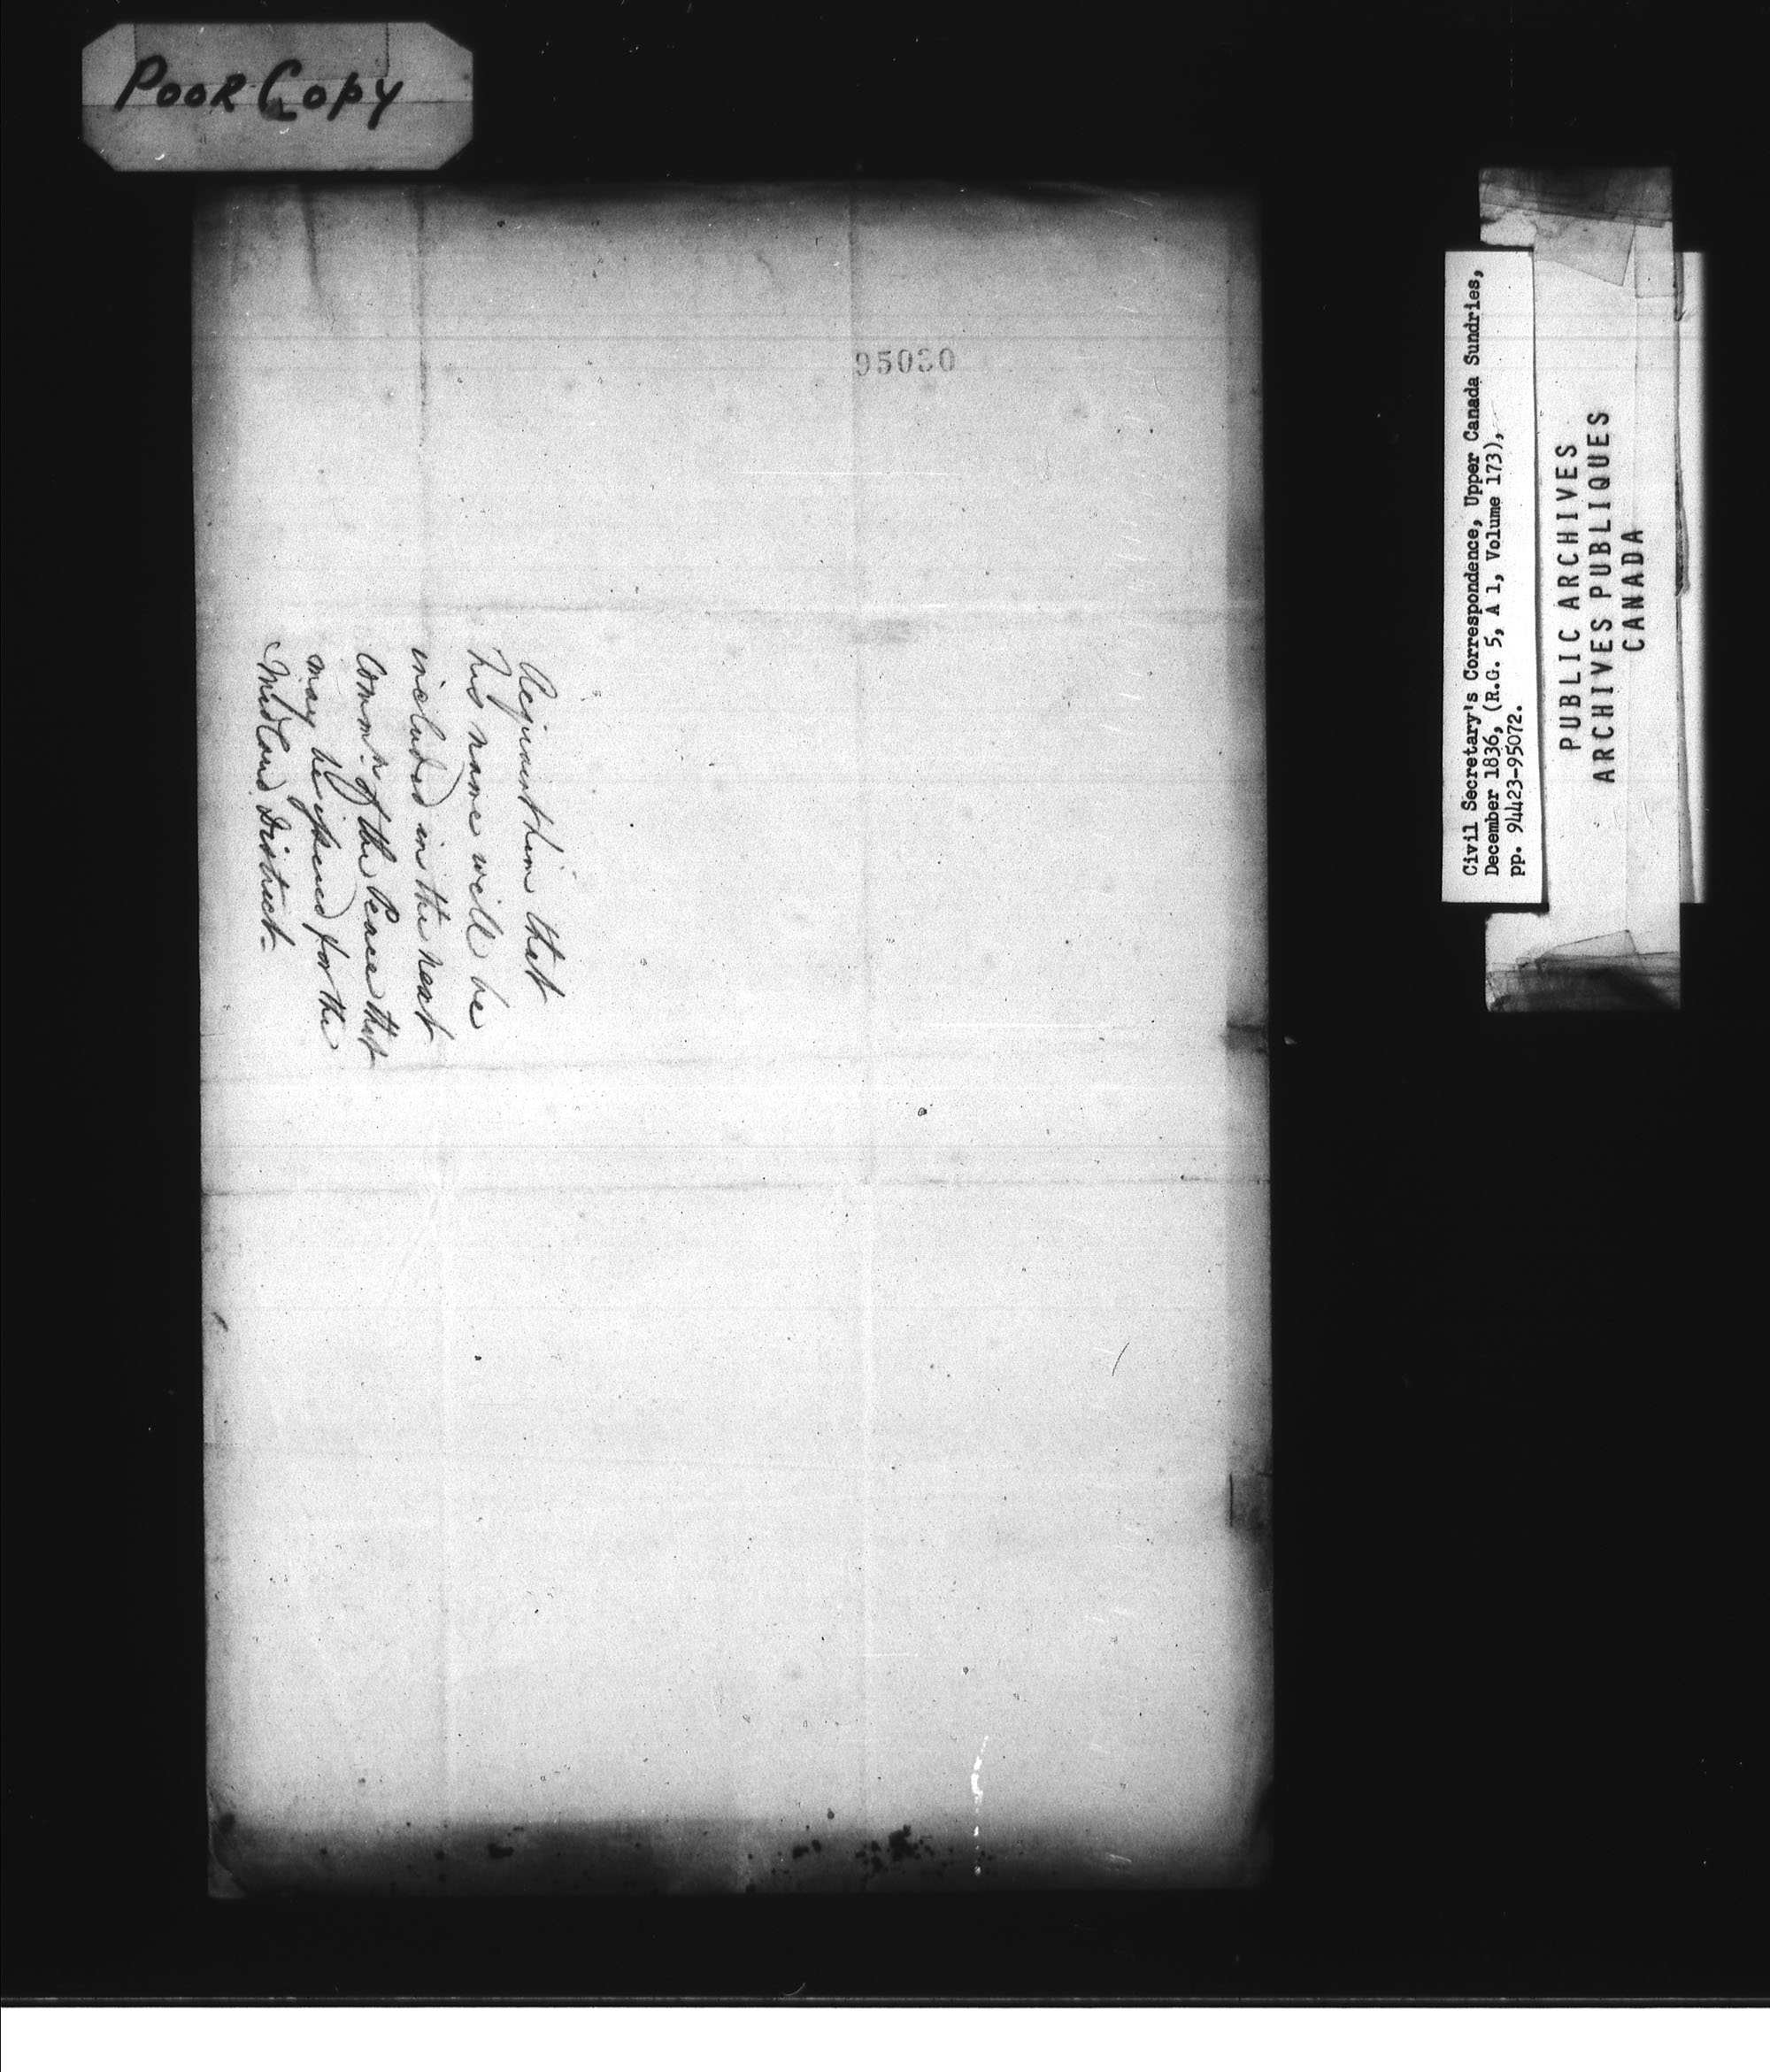 Poor Copy
95030
Acquaint him that
his name will be
included in the next
Comm.n of the Peace that
may be issued for the
Midland District.
Civil Secretary's Correspondence, Upper Canada Sundries,
December 1836, (R.G. 5, A 1, Volume 173),
pp. 94423-95072.
PUBLIC ARCHIVES
ARCHIVES PUBLIQUES
CANADA